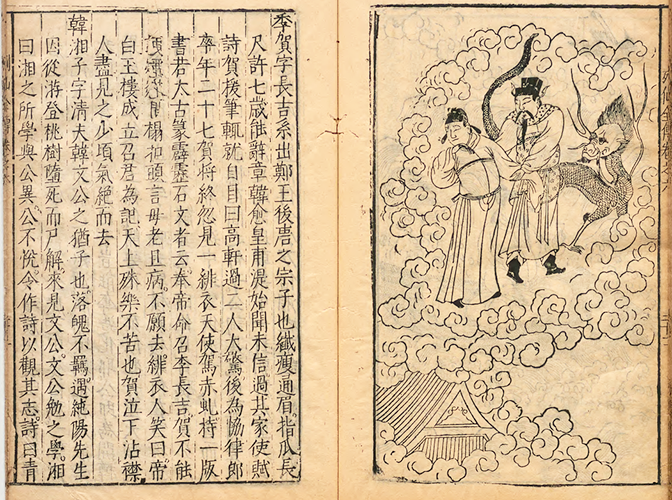 李賀字長吉系出鄭王後唐之宗子也纖瘦通眉指瓜長
尺許七歲能辭章韓愈皇甫湜始聞未信過其家使賦
詩賀援筆輒就自目曰高軒過二人大驚後為恊律郎
卒年二十七賀將終忽見一緋衣天使駕赤虬持一版
書若太古篆霹靂石文者云奉帝命召李長吉賀不能
榻叩頭言母老且病不願去緋衣人笑曰帝
白玉樓成立召君為記天上殊樂不苦也賀泣下沾襟
人盡見之少頃氣絶而去
韓湘子字清夫韓文公之猶子也落魄不羈遇純陽先生
因從游登桃樹墮死而尸解來見文公文公勉之學湘
曰湘之所學與公異公不悅令作詩以觀其志詩曰青